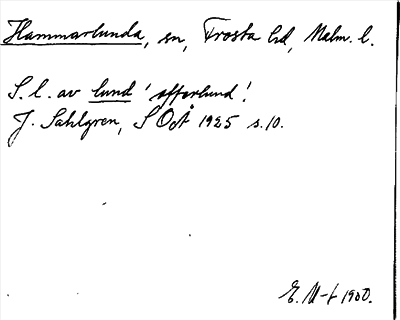 Hammarlunda, sn, Frosta hd, Malm. l.
S. l. av lund 'offerlund'.
J. Sahlgren, SOÅ 1925 s. 10.
1900.